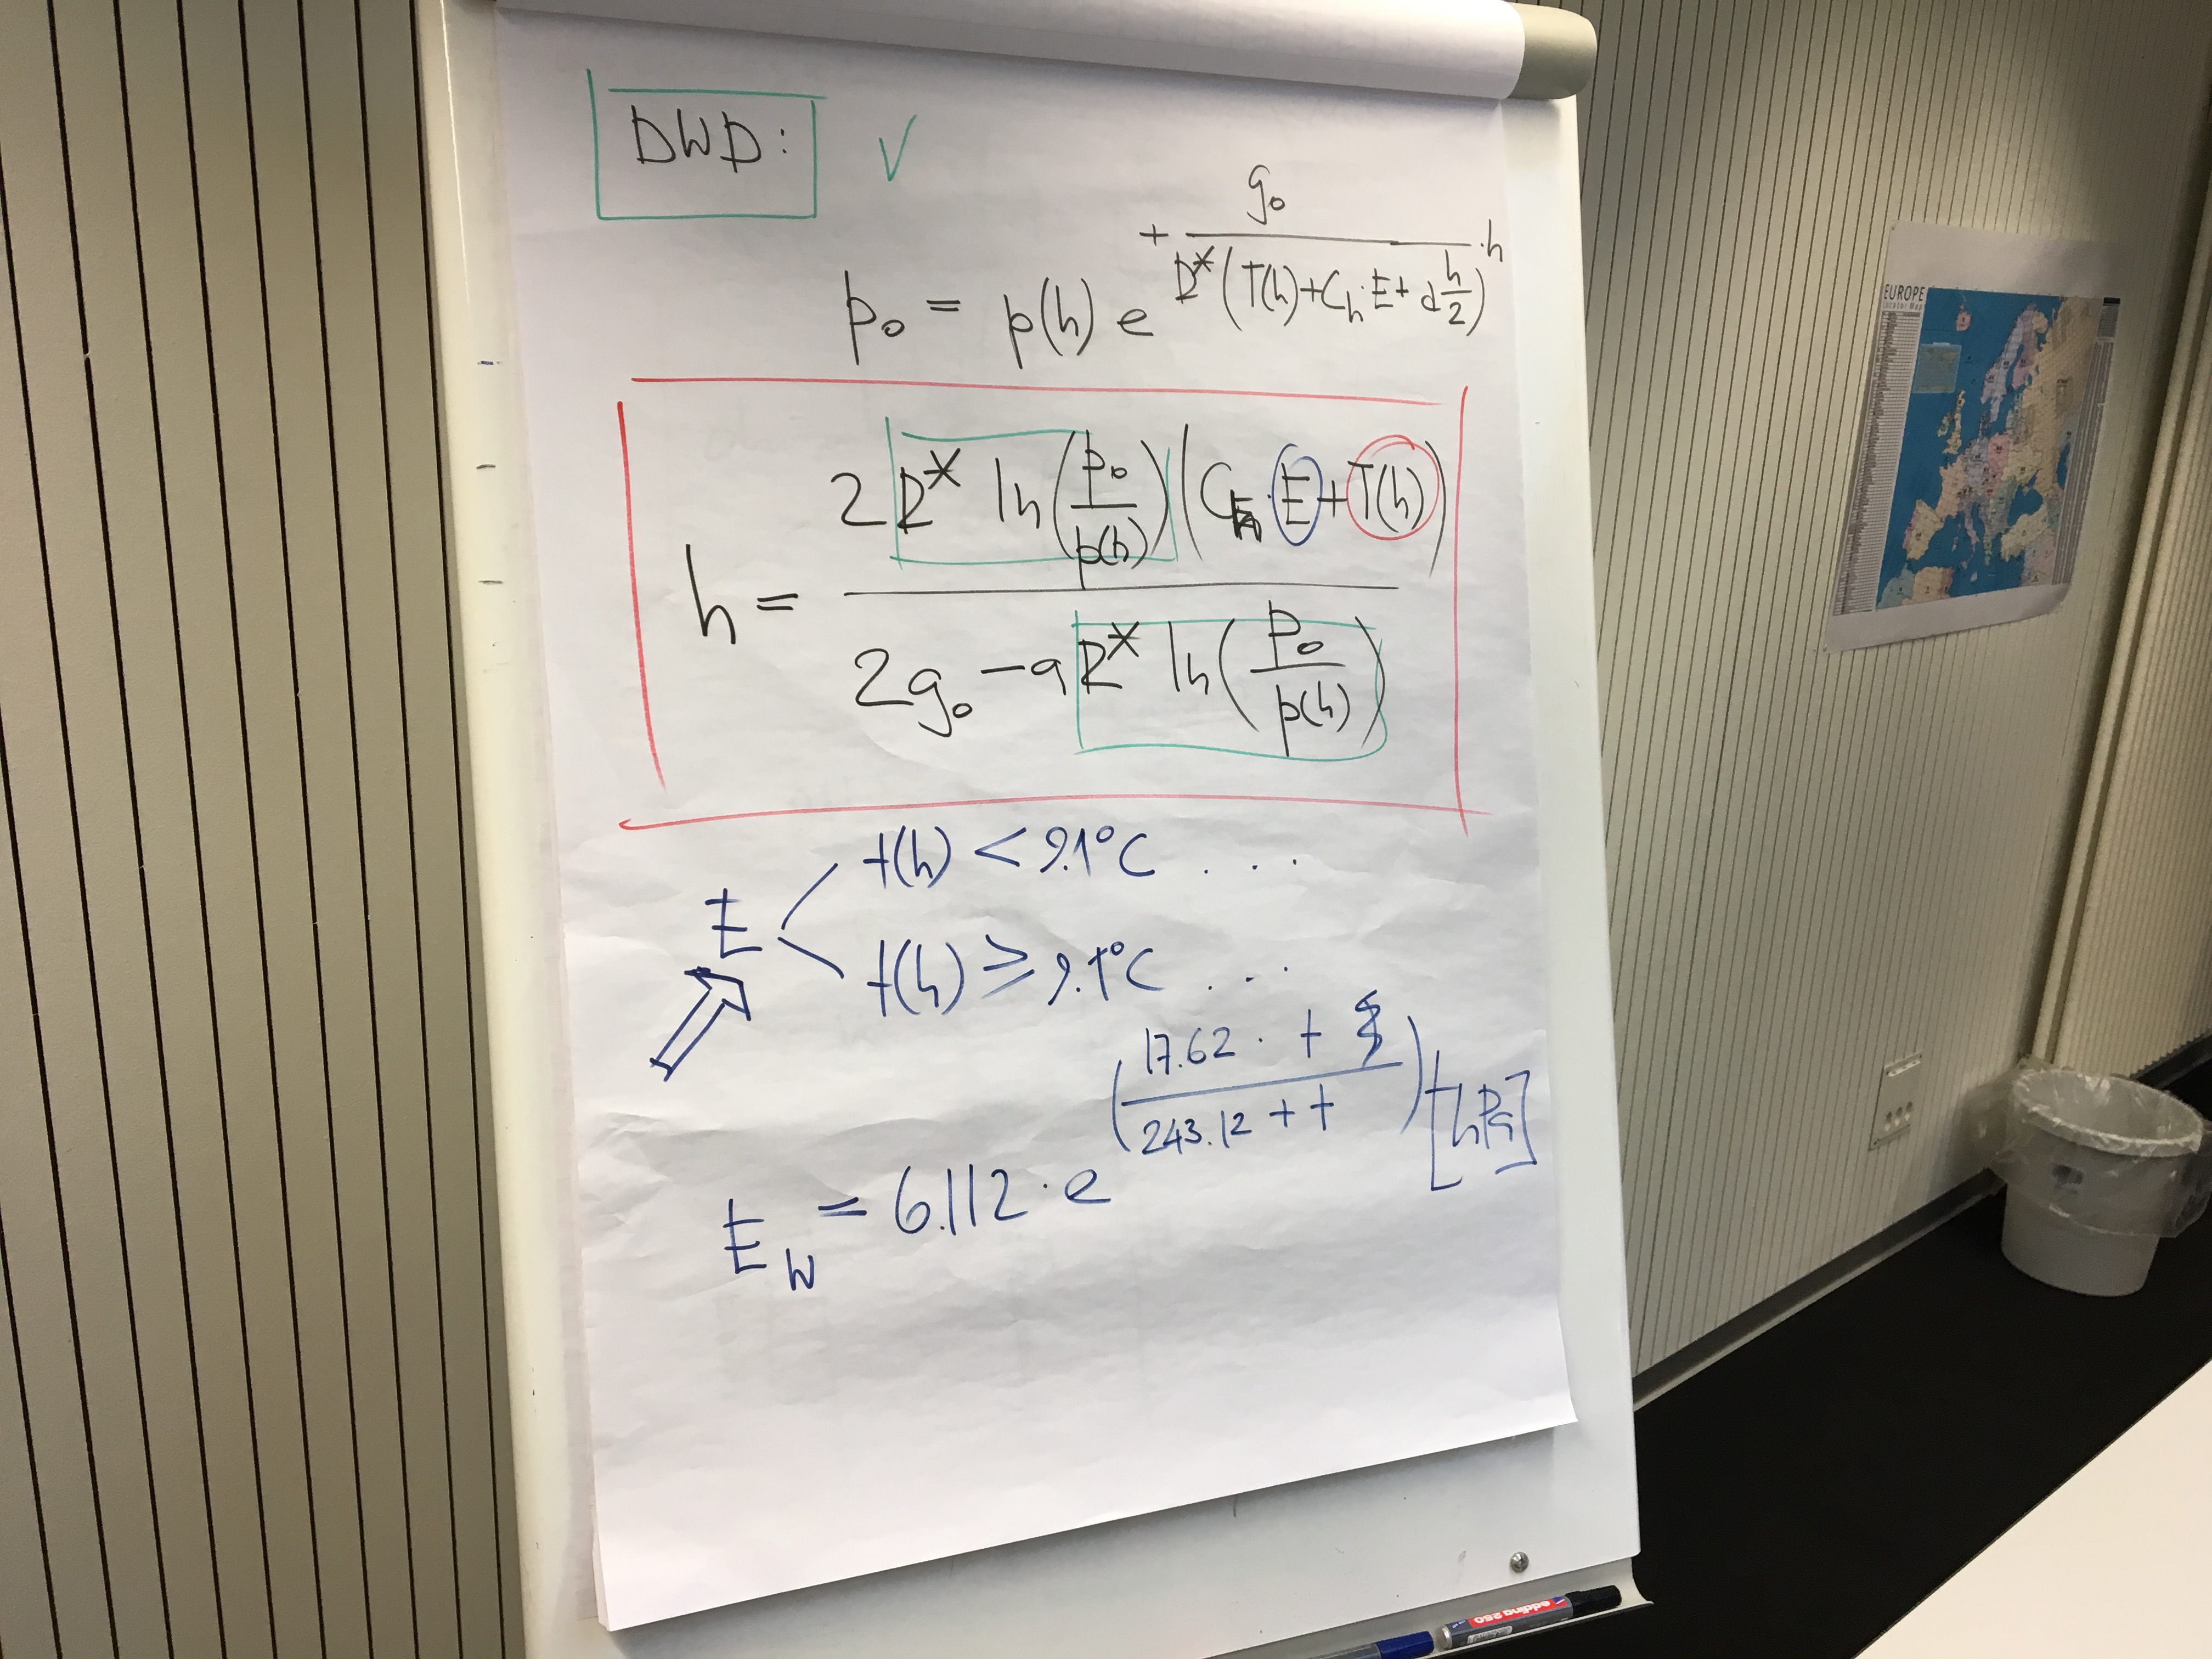 DWD: √
p₀ = p(h) e^(+ g₀ / (R* (T(h) + C_h · E + a h/2)) · h)
h = (2 R* ln(p₀ / p(h)) (C_h · E + T(h))) / (2g₀ − a R* ln(p₀ / p(h)))
E
t(h) < 9.1°C . . .
t(h) ≥ 9.1°C . . .
E_W = 6.112 · e^(17.62 · t / (243.12 + t)) [hPa]
EUROPE
edding 250